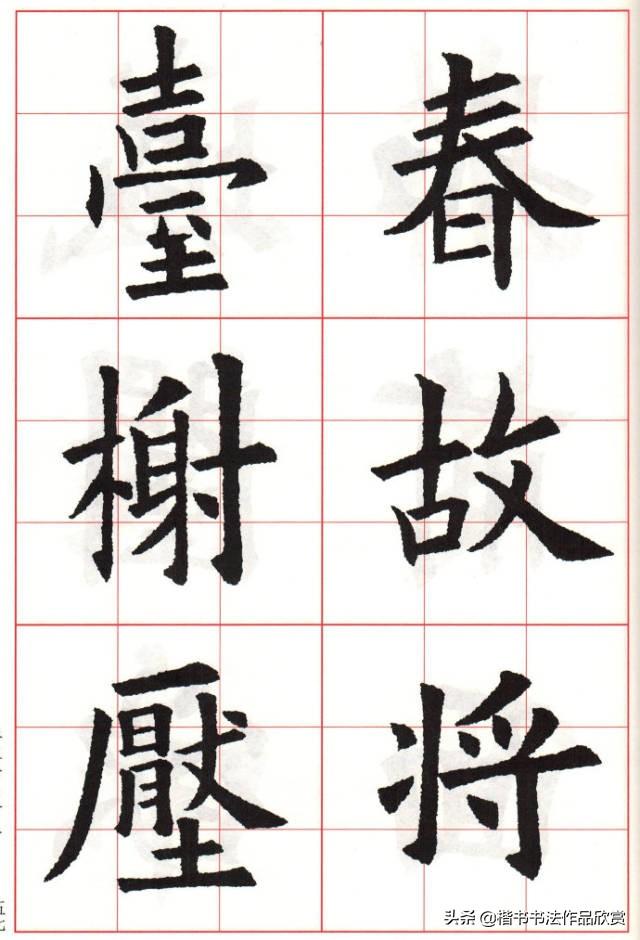 春故将
臺榭壓
头条 @楷书书法作品欣赏